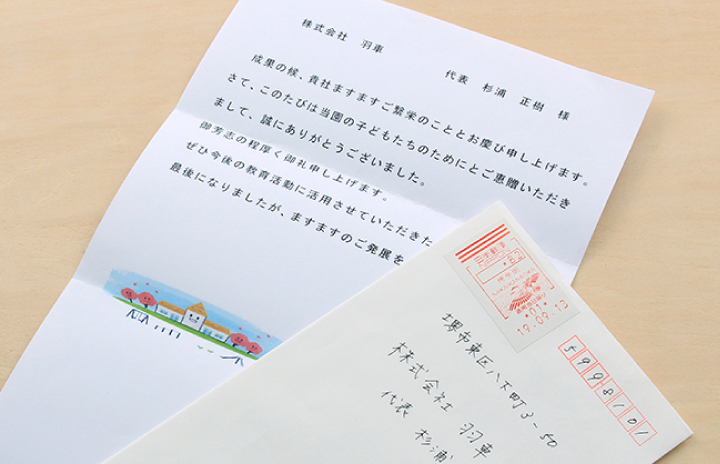 様式会社 羽車
代表 杉浦 正樹 様
成果の候、貴社ますますご繋栄のこととお慶び申し上げます。
さて、このたびは当園の子どもたちのためにとご恵贈いただき
まして、誠にありがとうございました。
御芳志の程厚く御礼申し上げます。
ぜひ今後の教育活動に活用させていただきた
最後になりましたが、ますますのご発展を
19.09.13
5998101
堺市東区八下町3-50
株式会社 羽車
代表 杉浦